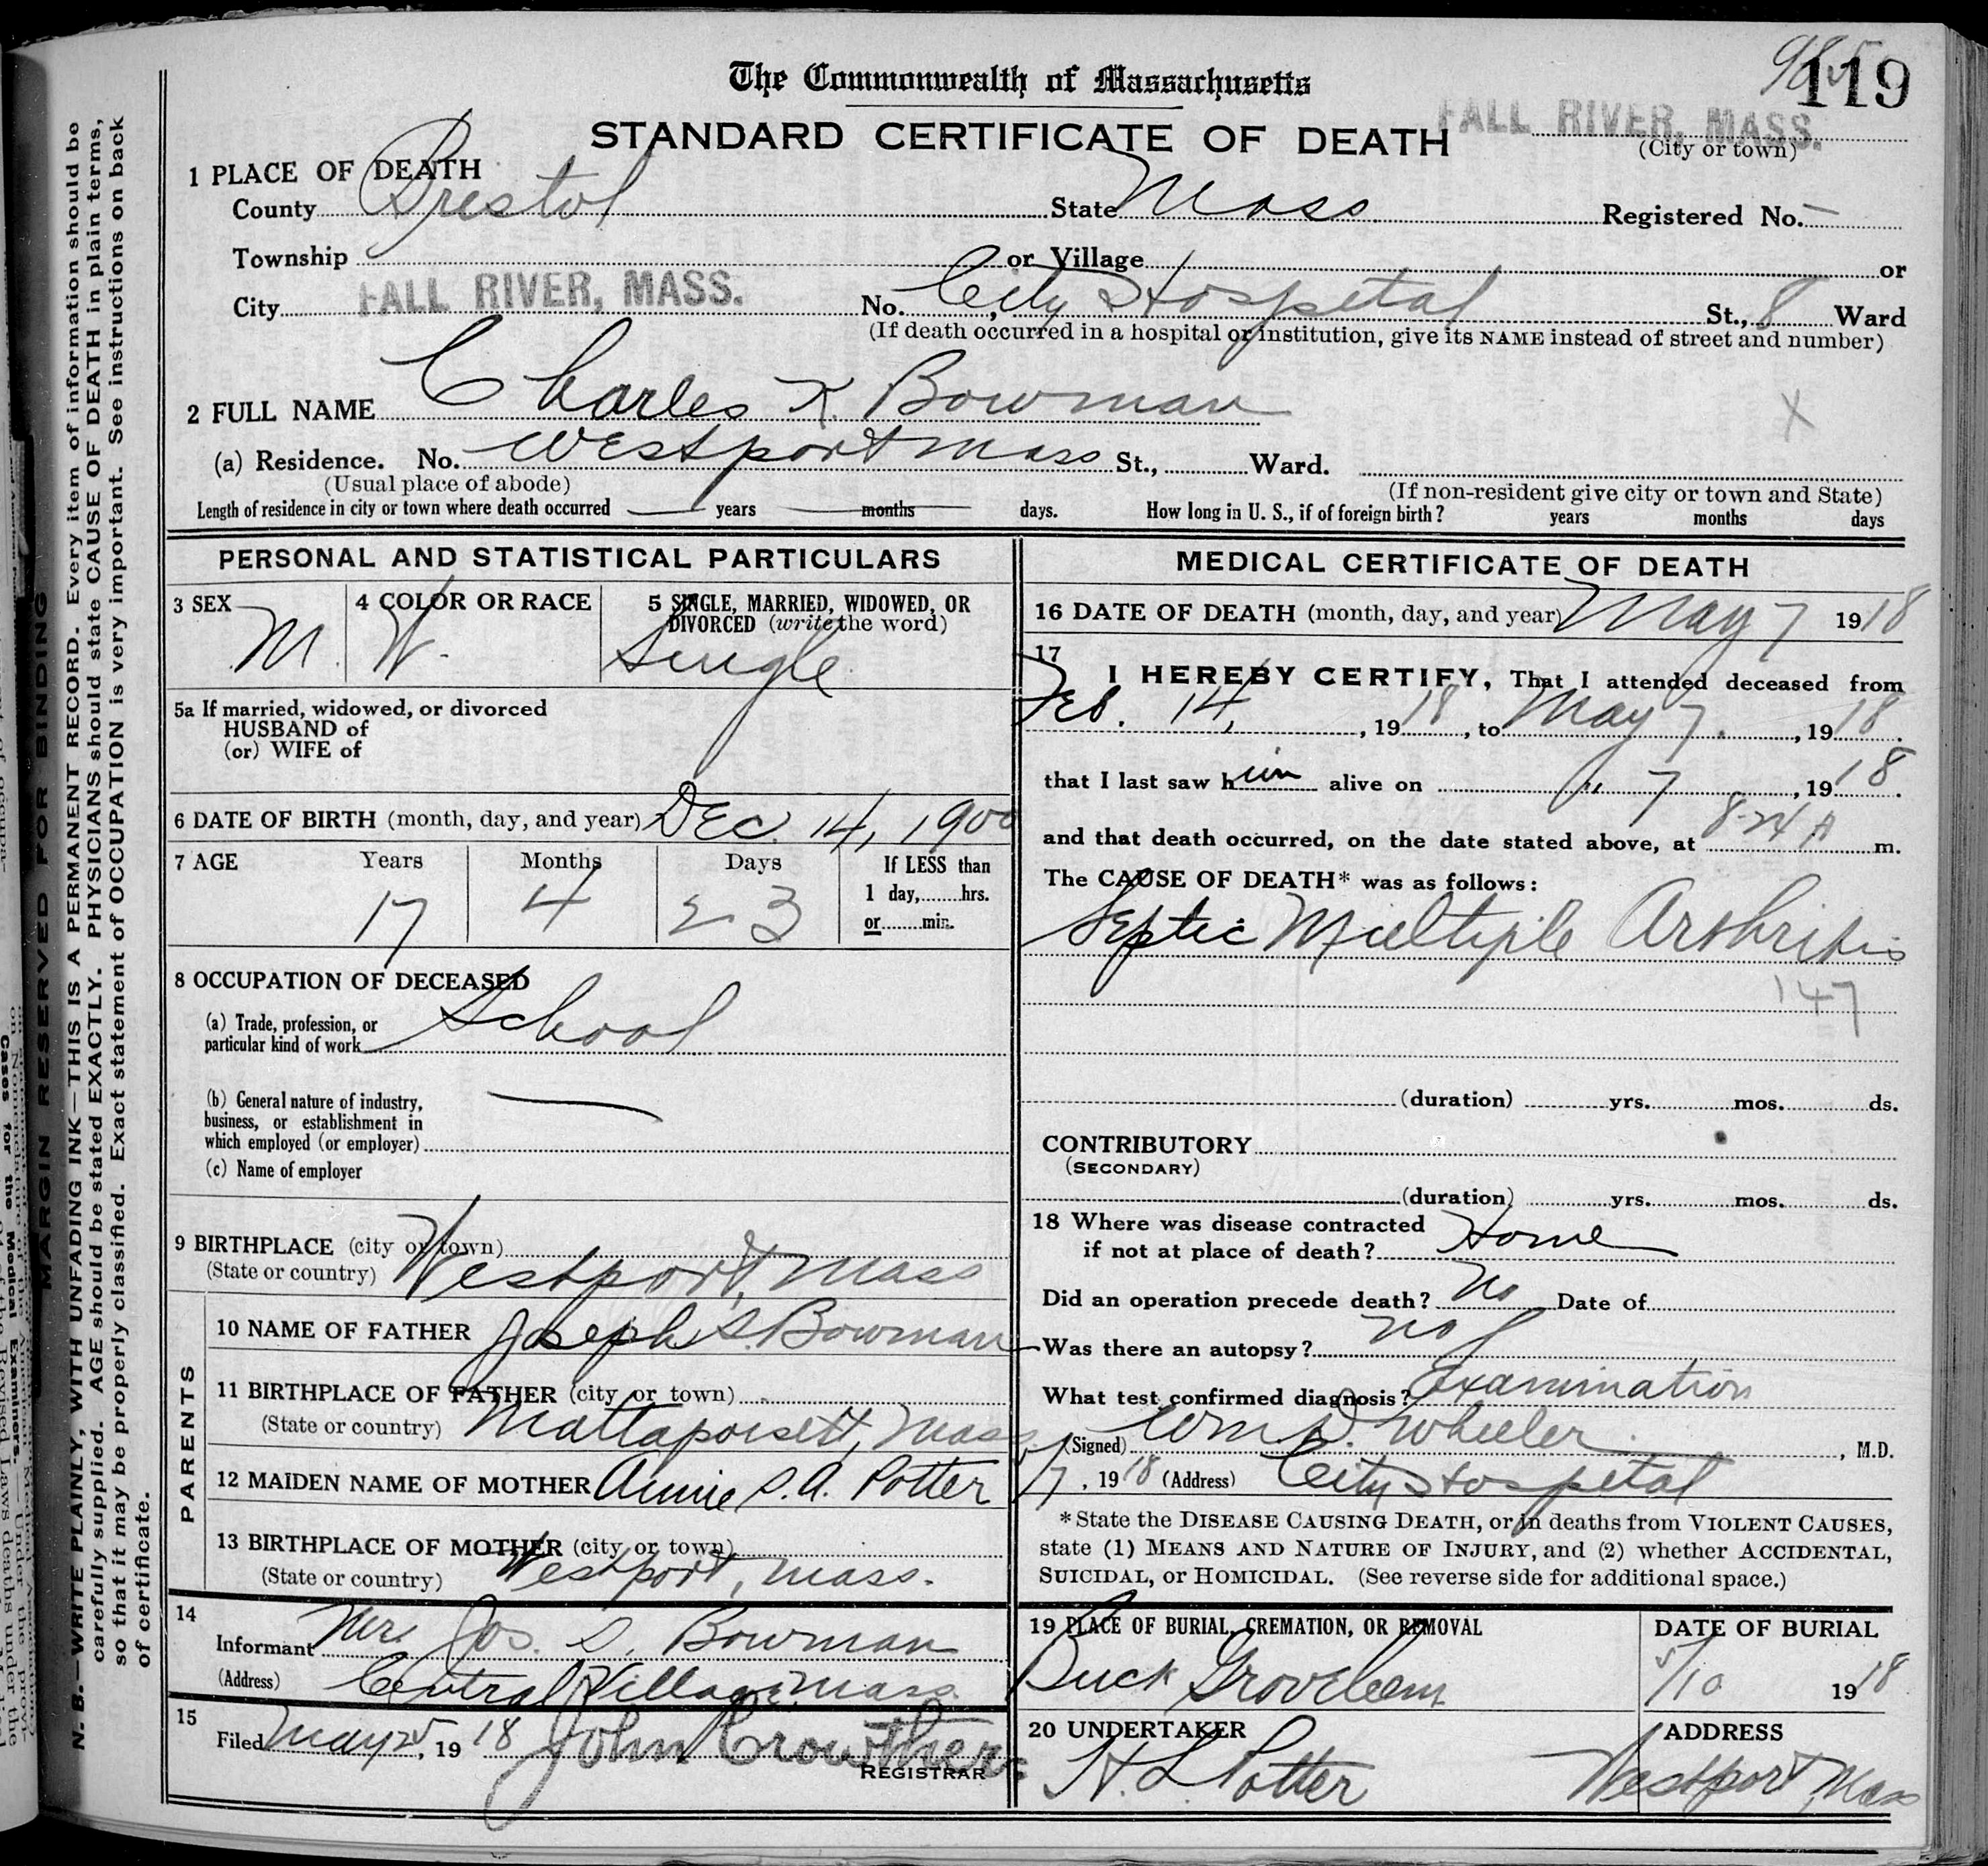 985
119
The Commonwealth of Massachusetts
STANDARD CERTIFICATE OF DEATH
FALL RIVER, MASS.
(City or town)
1 PLACE OF DEATH
County Bristol State Mass Registered No. —
Township or Village or
City FALL RIVER, MASS. No. City Hospital St., 8 Ward
(If death occurred in a hospital or institution, give its NAME instead of street and number)
2 FULL NAME Charles K. Bowman
X
(a) Residence. No. Westport Mass St., Ward.
(Usual place of abode) (If non-resident give city or town and State)
Length of residence in city or town where death occurred years months days. How long in U. S., if of foreign birth? years months days
PERSONAL AND STATISTICAL PARTICULARS
3 SEX M. 4 COLOR OR RACE W. 5 SINGLE, MARRIED, WIDOWED, OR
DIVORCED (write the word)
Single
5a If married, widowed, or divorced
HUSBAND of
(or) WIFE of
6 DATE OF BIRTH (month, day, and year) Dec. 14, 1900
7 AGE Years Months Days If LESS than
1 day, hrs.
or min.
17 4 23
8 OCCUPATION OF DECEASED
(a) Trade, profession, or
particular kind of work School
(b) General nature of industry,
business, or establishment in
which employed (or employer) —
(c) Name of employer
9 BIRTHPLACE (city or town)
(State or country) Westport, Mass
PARENTS
10 NAME OF FATHER Joseph S. Bowman
11 BIRTHPLACE OF FATHER (city or town)
(State or country) Mattapoisett, Mass
12 MAIDEN NAME OF MOTHER Annie S. A. Potter
13 BIRTHPLACE OF MOTHER (city or town)
(State or country) Westport, Mass.
14
Informant Mr. Jos. S. Bowman
(Address) Central Village Mass.
15
Filed May 25, 1918 John Crowther
REGISTRAR
MEDICAL CERTIFICATE OF DEATH
16 DATE OF DEATH (month, day, and year) May 7 1918
17
I HEREBY CERTIFY, That I attended deceased from
Feb. 14, , 1918, to May 7. , 1918.
that I last saw him alive on " 7 , 1918.
and that death occurred, on the date stated above, at 8-24 A m.
The CAUSE OF DEATH* was as follows:
Septic Multiple Arthritis
147
(duration) yrs. mos. ds.
CONTRIBUTORY
(SECONDARY)
(duration) yrs. mos. ds.
18 Where was disease contracted
if not at place of death? Home
Did an operation precede death? No Date of
Was there an autopsy? No
What test confirmed diagnosis? Examination
(Signed) Wm D. Wheeler , M.D.
5/7, 1918 (Address) City Hospital
*State the DISEASE CAUSING DEATH, or in deaths from VIOLENT CAUSES,
state (1) MEANS AND NATURE OF INJURY, and (2) whether ACCIDENTAL,
SUICIDAL, or HOMICIDAL. (See reverse side for additional space.)
19 PLACE OF BURIAL, CREMATION, OR REMOVAL DATE OF BURIAL
Beech Grove Cem 5/10 1918
20 UNDERTAKER ADDRESS
H. L. Potter Westport, Mass
MARGIN RESERVED FOR BINDING
N. B.—WRITE PLAINLY, WITH UNFADING INK—THIS IS A PERMANENT RECORD. Every item of information should be
carefully supplied. AGE should be stated EXACTLY. PHYSICIANS should state CAUSE OF DEATH in plain terms,
so that it may be properly classified. Exact statement of OCCUPATION is very important. See instructions on back
of certificate.